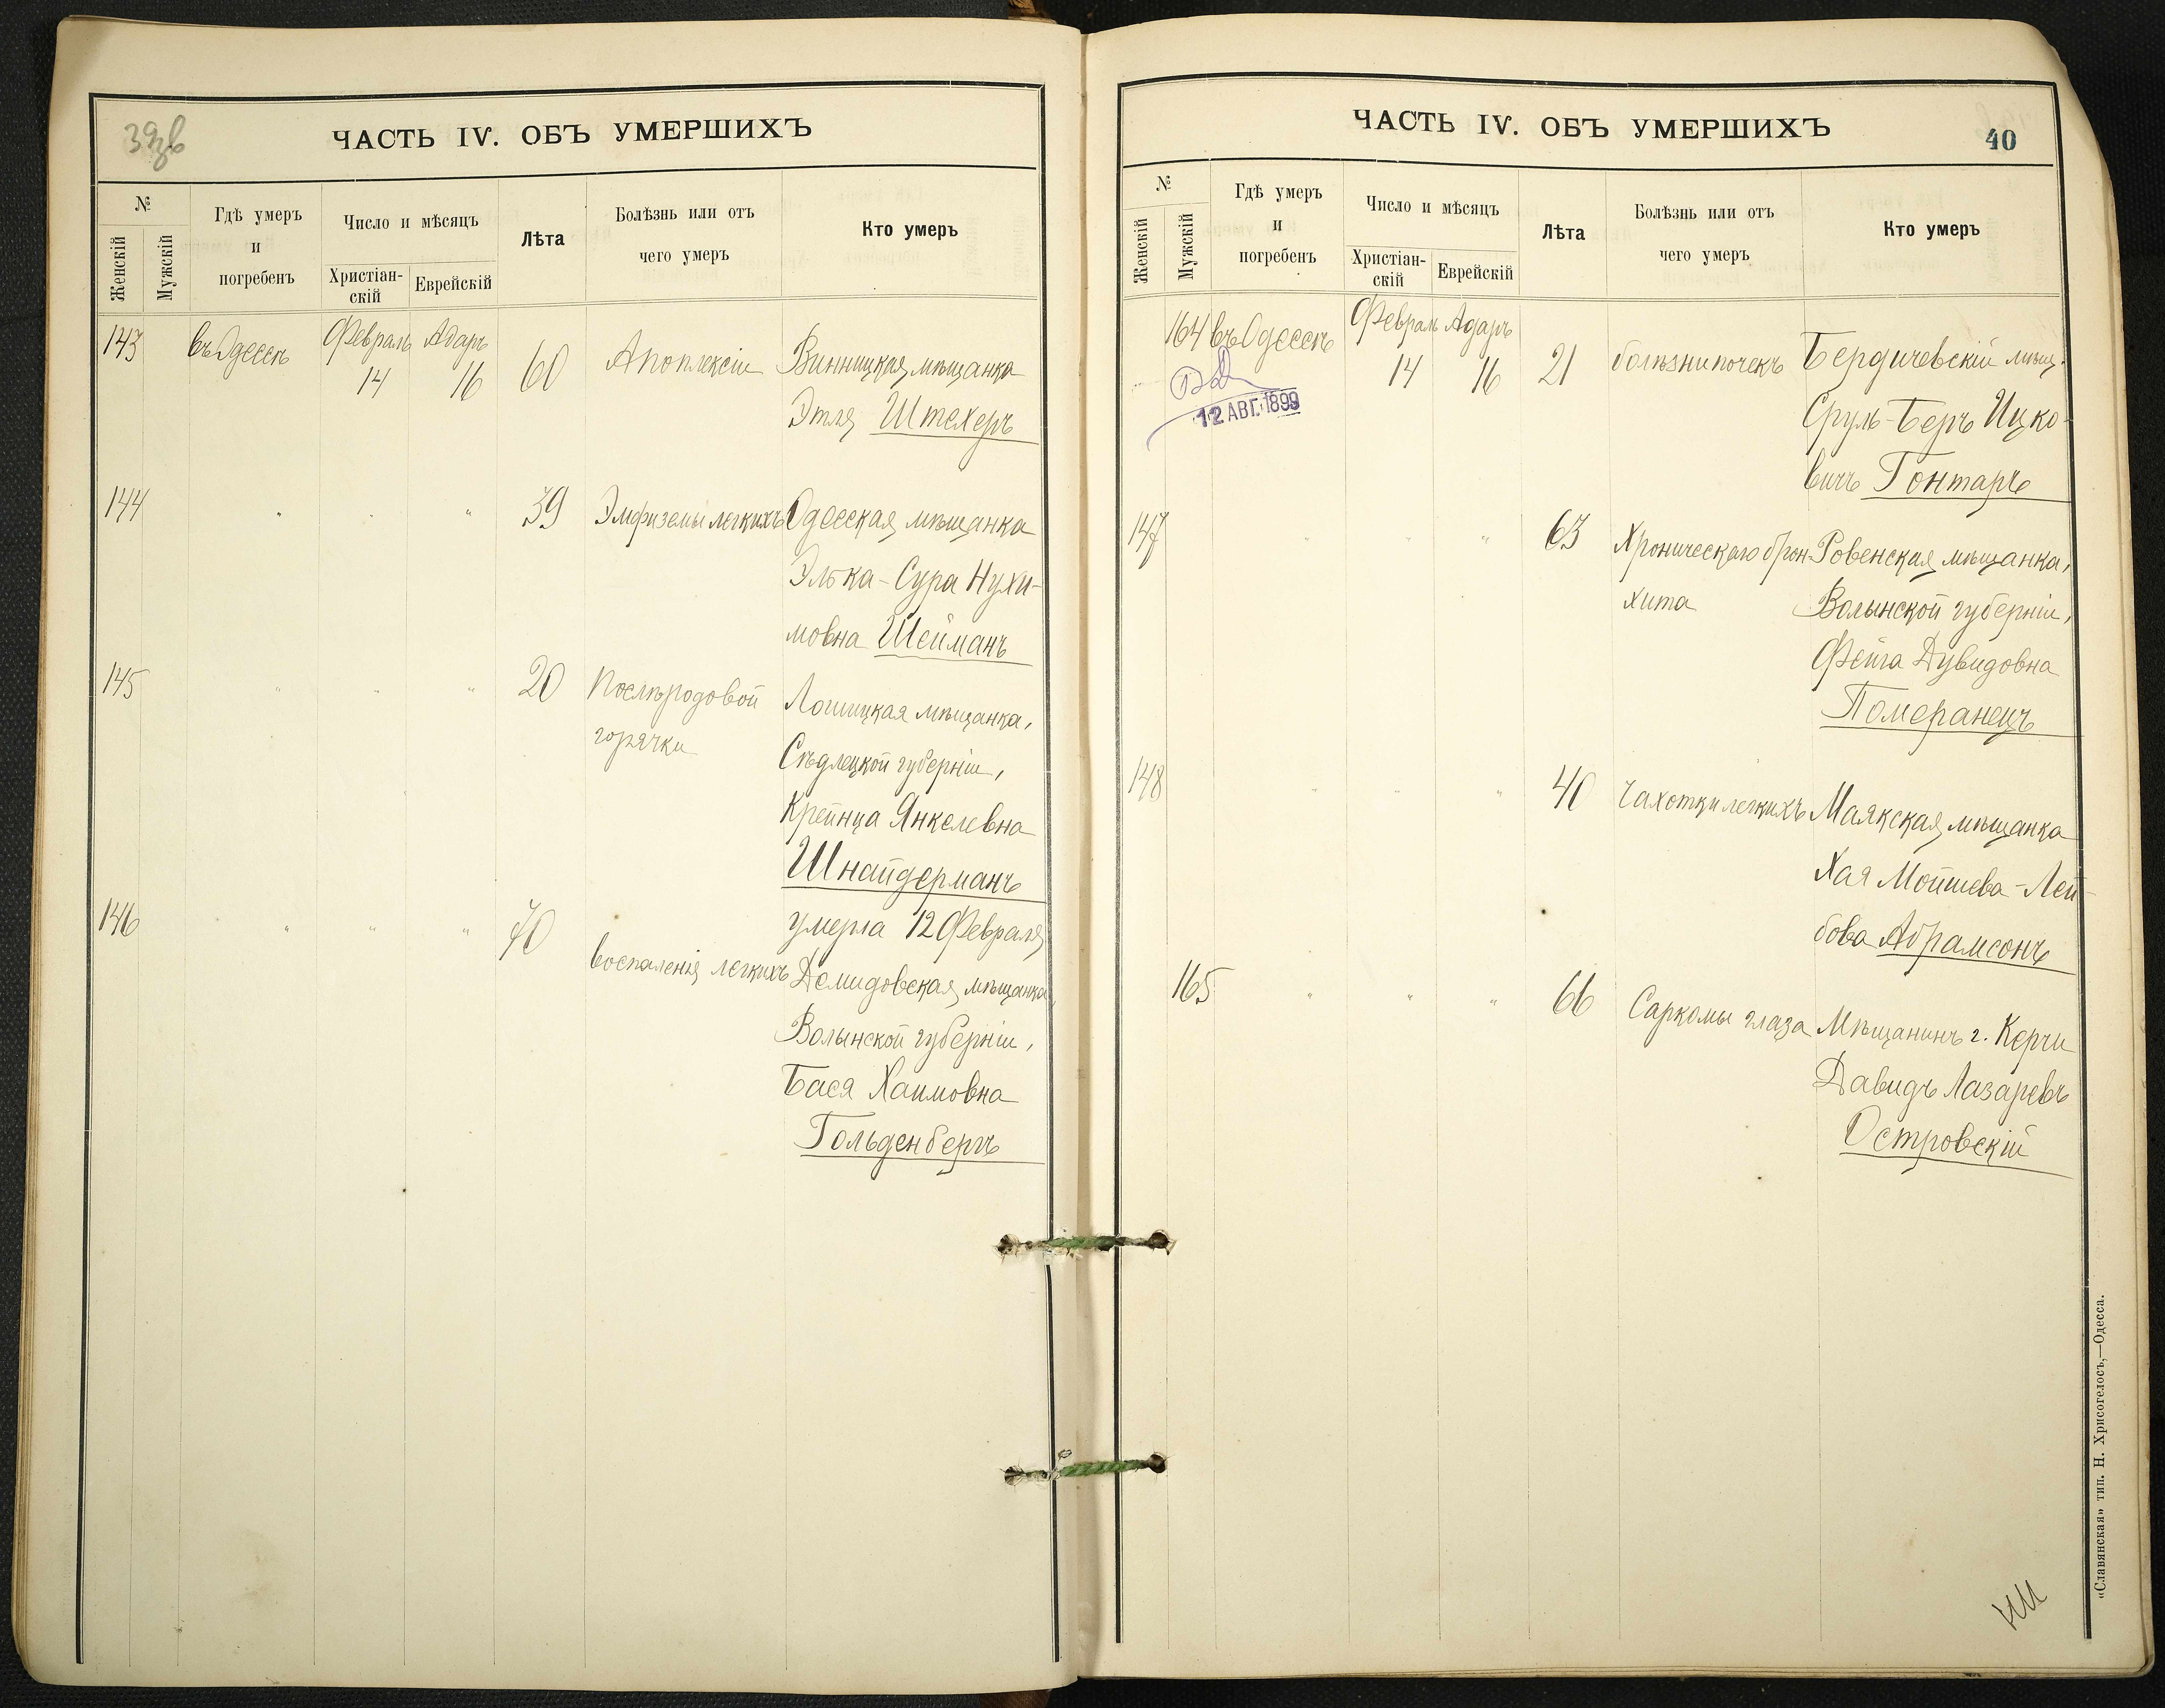 39 зв
ЧАСТЬ IV. ОБЪ УМЕРШИХЪ
№
Женскій
Мужскій
Гдѣ умеръ
и
погребенъ
Число и мѣсяцъ
Христіан-
скій
Еврейскій
Лѣта
Болѣзнь или отъ
чего умеръ
Кто умеръ
143 въ Одессѣ Февраль Адаръ
14 16 60 Апоплексіи Винницкая мѣщанка
Этля Штехеръ
144 " " " 39 Эмфиземы легкихъ Одесская мѣщанка
Элька-Сура Нухи-
мовна Шейманъ
145 " " " 20 Послѣродовой Лошицкая мѣщанка,
горячки Сѣдлецкой губерніи,
Крейнца Янкелевна
Шнайдерманъ
умерла 12 Февраля
146 " " " 70 воспаленія легкихъ Демидовская мѣщанка,
Волынской губерніи,
Бася Хаимовна
Гольденбергъ
ЧАСТЬ IV. ОБЪ УМЕРШИХЪ
40
№
Женскій
Мужскій
Гдѣ умеръ
и
погребенъ
Число и мѣсяцъ
Христіан-
скій
Еврейскій
Лѣта
Болѣзнь или отъ
чего умеръ
Кто умеръ
164 въ Одессѣ Февраль Адаръ
14 16 21 болѣзни почекъ Бердичевскій мѣщ.
12 АВГ. 1899
Сруль-Беръ Ицко-
вичъ Гонтарь
147 " " " 63 Хроническаго брон- Ровенская мѣщанка,
хита Волынской губерніи,
Фейга Дувидовна
Померанецъ
148 " " " 40 Чахотки легкихъ Маякская мѣщанка
Хая Мойшева-Лей-
бова Абрамсонъ
165 " " " 66 Саркомы глаза Мѣщанинъ г. Керчи
Давидъ Лазаревъ
Островскій
«Славянская» тип. Н. Хрисогелосъ,—Одесса.